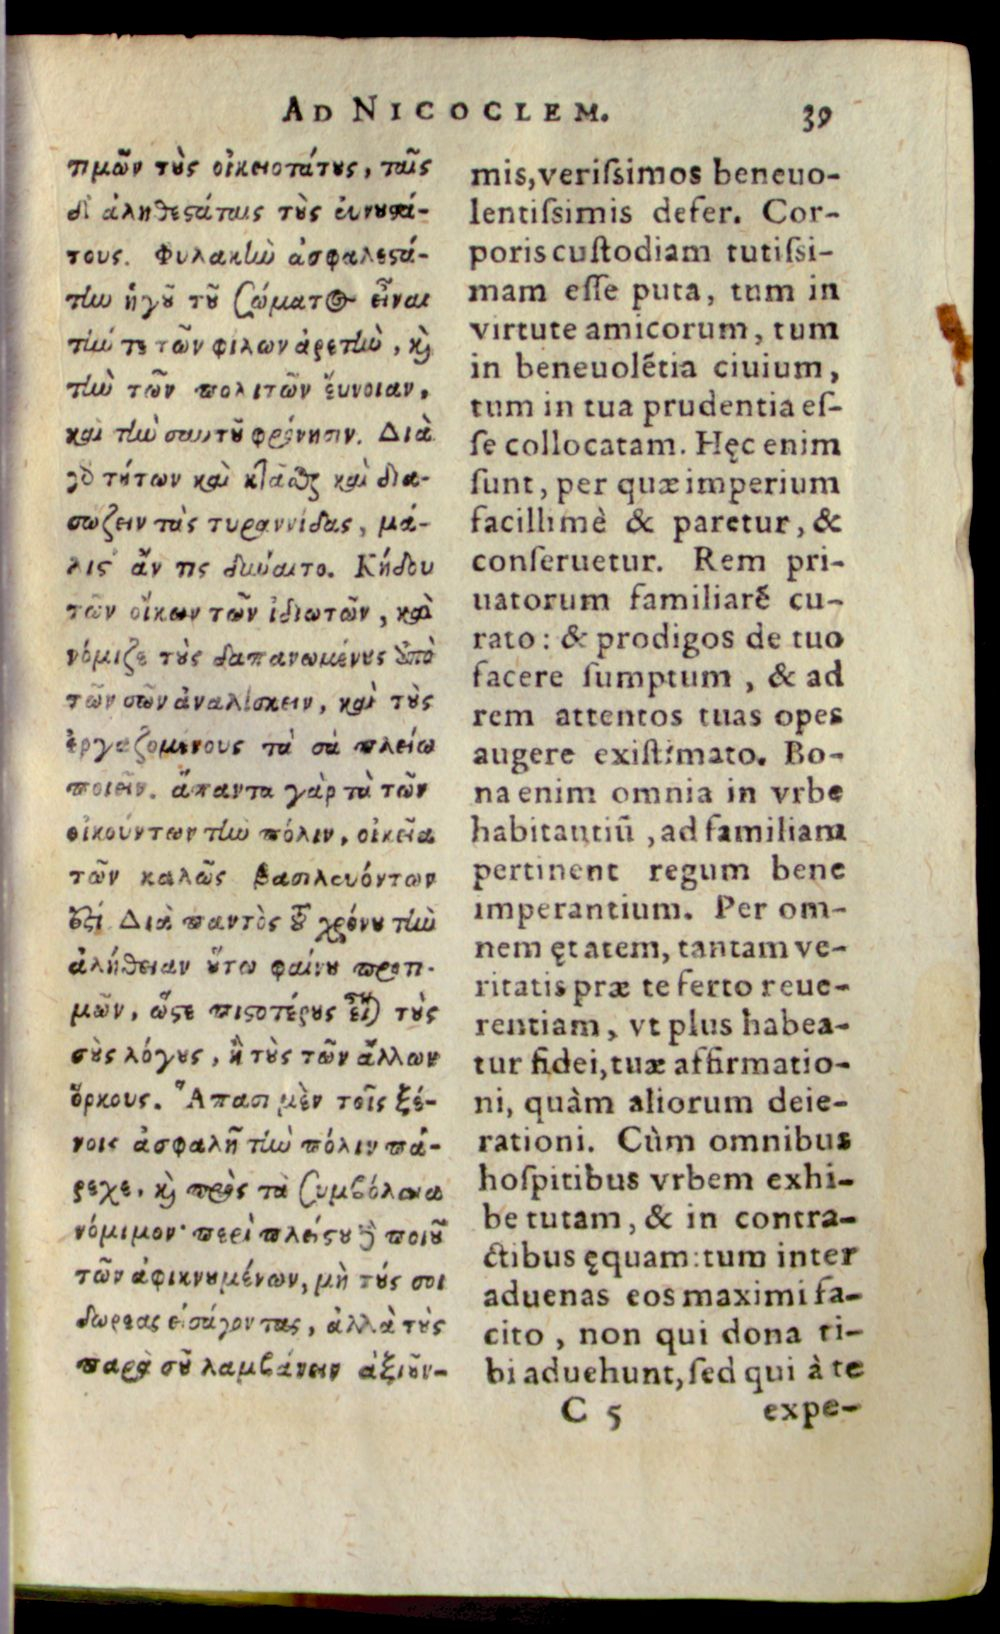 AD NICOCLEM. 39
τιμῶν τοὺς οἰκειοτάτους, ταῖς
δὲ ἀληθεστάταις τοὺς εὐνουστά-
τους. Φυλακὴν ἀσφαλεστά-
την ἡγοῦ τοῦ σώματος εἶναι
τήν τε τῶν φίλων ἀρετὴν, καὶ
τὴν τῶν πολιτῶν εὔνοιαν,
καὶ τὴν σαυτοῦ φρόνησιν. Διὰ
γὸ τούτων καὶ κτᾶσθαι καὶ δια-
σώζειν τὰς τυραννίδας, μά-
λιστ' ἄν τις δύναιτο. Κήδου
τῶν οἴκων τῶν ἰδιωτῶν, καὶ
νόμιζε τοὺς δαπανωμένους ἀπὸ
τῶν σῶν ἀναλίσκειν, καὶ τοὺς
ἐργαζομένους τὰ σὰ πλείω
ποιεῖν. ἅπαντα γὰρ τὰ τῶν
οἰκούντων τὴν πόλιν, οἰκεῖα
τῶν καλῶς βασιλευόντων
ἐστί. Διὰ παντὸς τοῦ χρόνου τὴν
ἀλήθειαν οὕτω φαίνου προτι-
μῶν, ὥστε πιστοτέρους εἶναι τοὺς
σοὺς λόγους, ἢ τοὺς τῶν ἄλλων
ὅρκους. Ἅπασι μὲν τοῖς ξέ-
νοις ἀσφαλῆ τὴν πόλιν πά-
ρεχε, καὶ πρὸς τὰ συμβόλαια
νόμιμον· περὶ πλείστου δὲ ποιοῦ
τῶν ἀφικνουμένων, μὴ τούς σοι
δωρεὰς εἰσάγοντας, ἀλλὰ τοὺς
παρὰ σοῦ λαμβάνειν ἀξιοῦν-
mis, verissimos beneuo-
lentissimis defer. Cor-
poris custodiam tutissi-
mam esse puta, tum in
virtute amicorum, tum
in beneuolẽtia ciuium,
tum in tua prudentia es-
se collocatam. Hęc enim
sunt, per quæ imperium
facillimè & paretur, &
conseruetur. Rem pri-
uatorum familiarẽ cu-
rato: & prodigos de tuo
facere sumptum, & ad
rem attentos tuas opes
augere existimato. Bo-
na enim omnia in vrbe
habitantiũ, ad familiam
pertinent regum bene
imperantium. Per om-
nem ętatem, tantam ve-
ritatis præ te ferto reue-
rentiam, vt plus habea-
tur fidei, tuæ affirmatio-
ni, quàm aliorum deie-
rationi. Cùm omnibus
hospitibus vrbem exhi-
be tutam, & in contra-
ctibus ęquam: tum inter
aduenas eos maximi fa-
cito, non qui dona ti-
bi aduehunt, sed qui à te
C 5 expe-